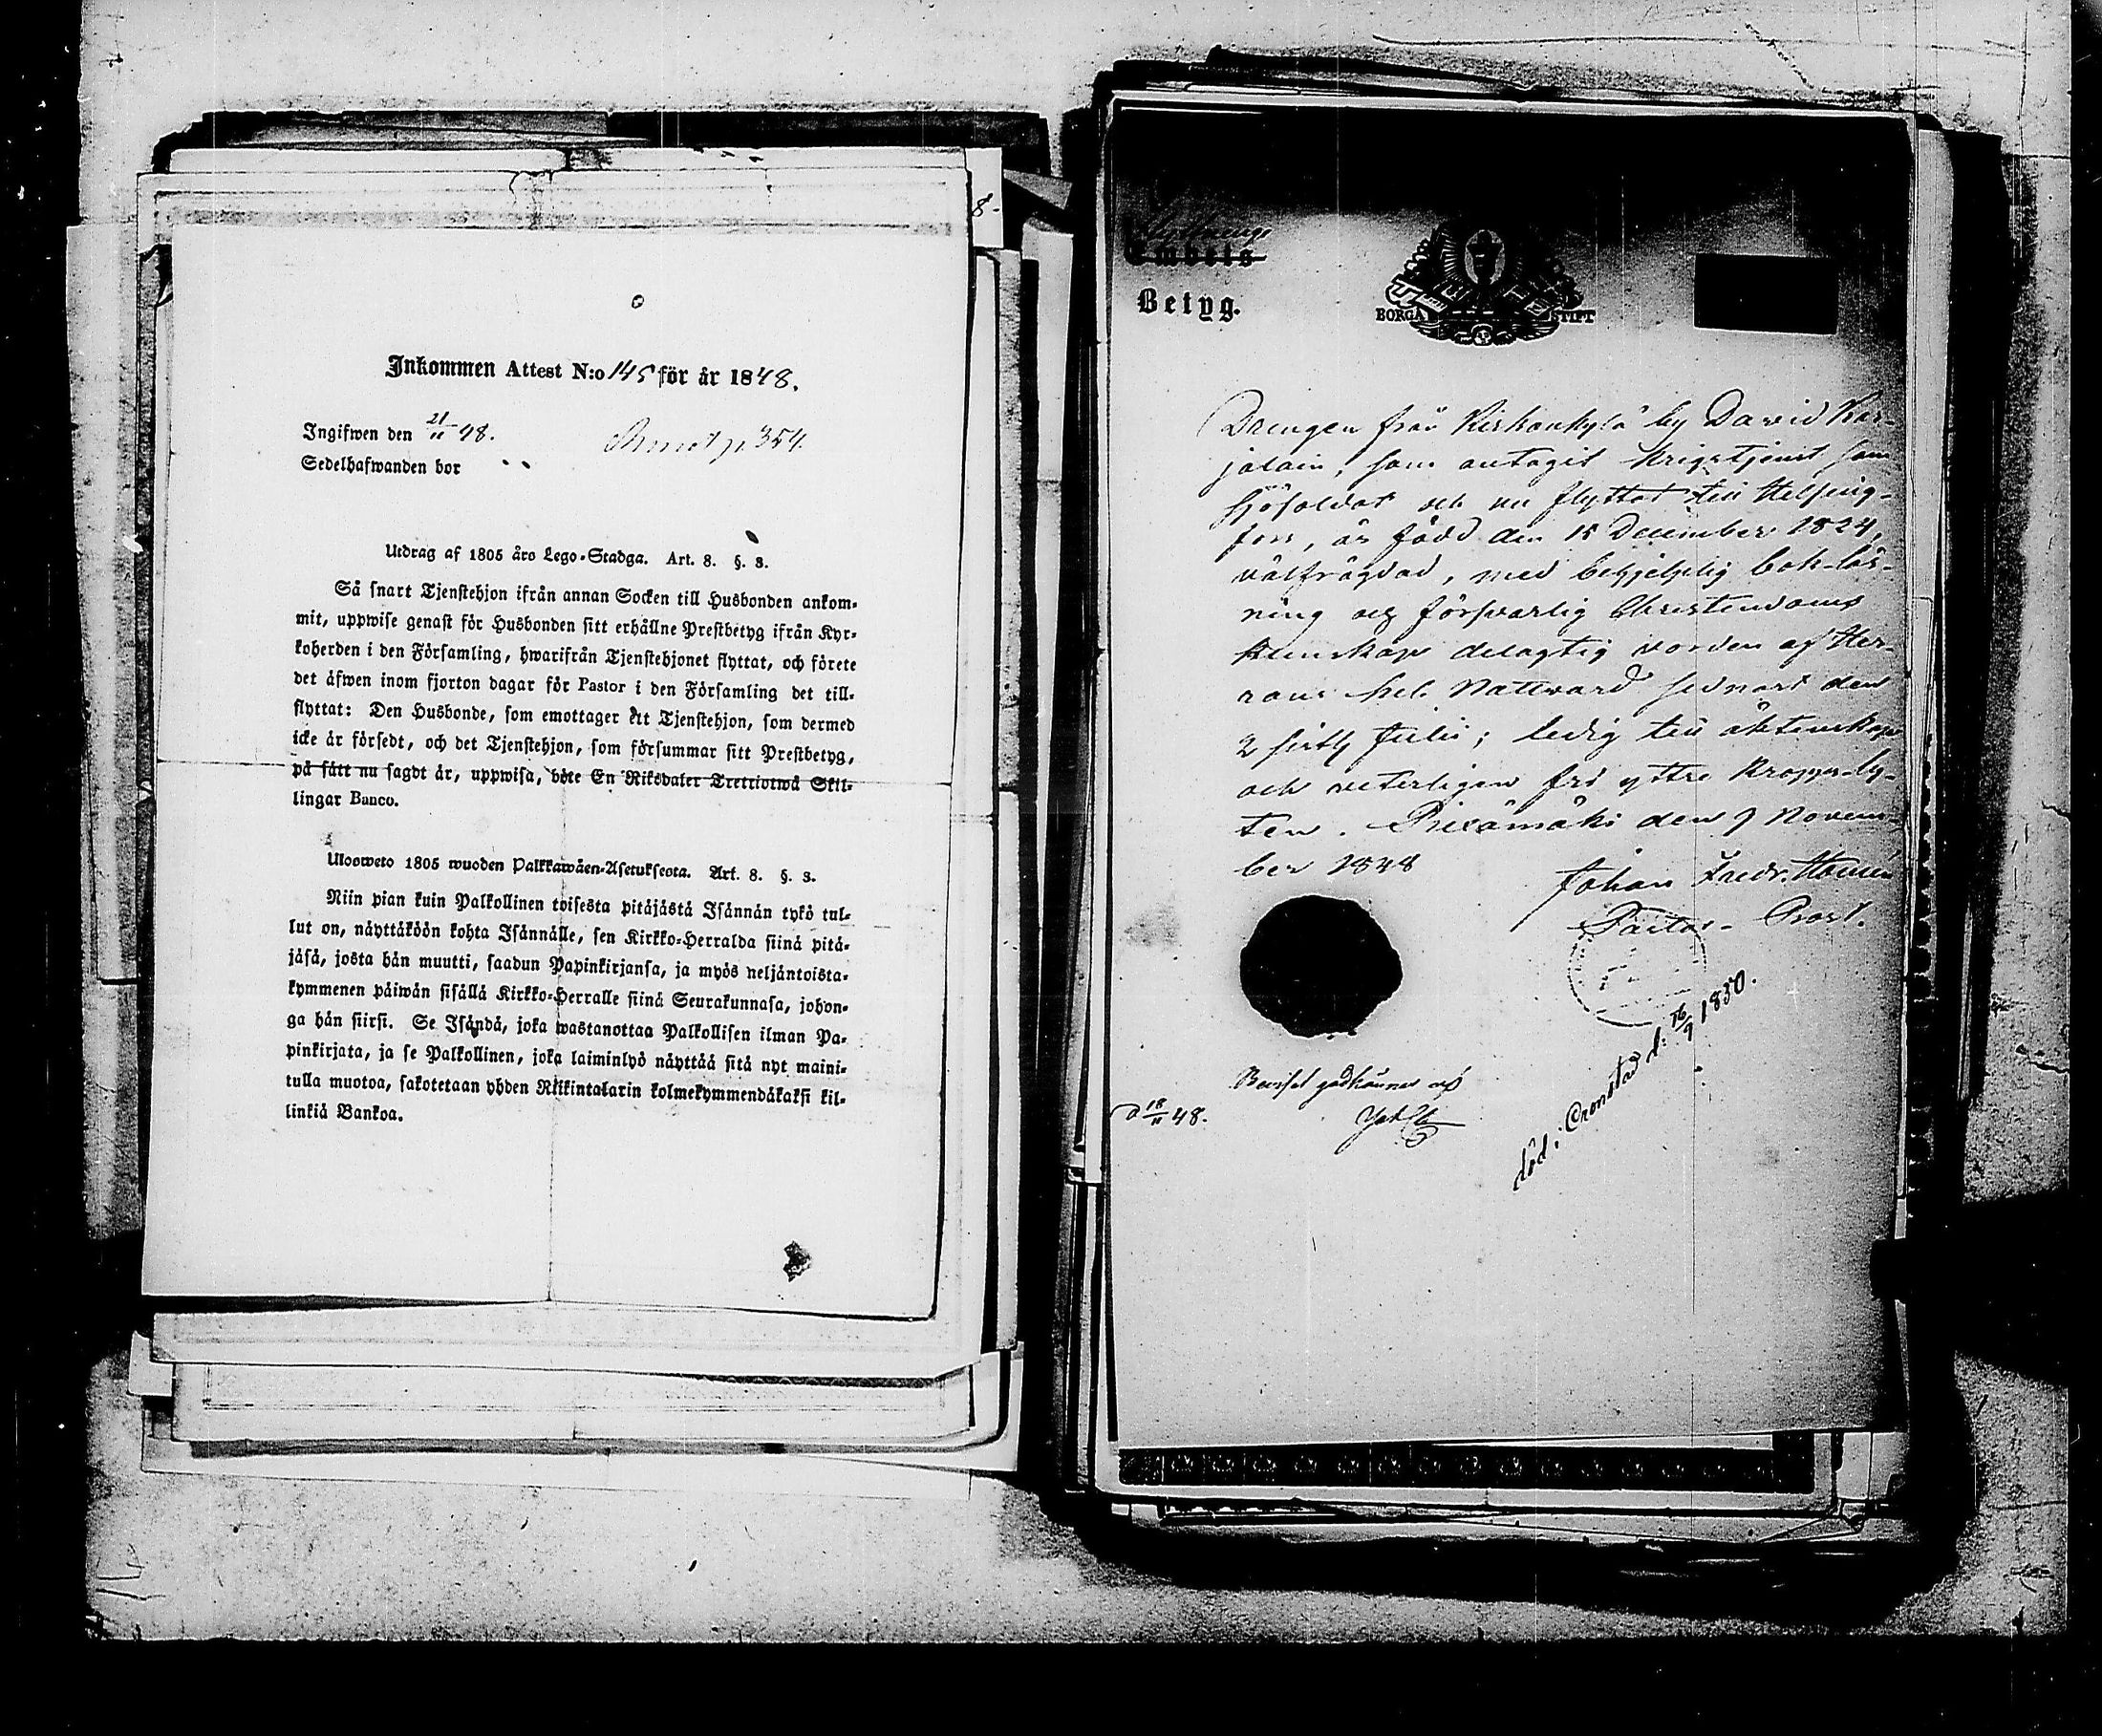 8-
Inkommen Attest N:o 145 för år 1848.
Ingifwen den 21/11 48.
p. 354.
Sedelhafwanden bor
Utdrag af 1805 års Lego-Stadga. Art. 8. §. 3.
Så snart Tjenstehjon ifrån annan Socken till Husbonden ankom-
mit, uppwise genast för Husbonden sitt erhållne Prestbetyg ifrån Kyr-
koherden i den Församling, hwarifrån Tjenstehjonet flyttat, och förete
det äfwen inom fjorton dagar för Pastor i den Församling det till-
flyttat: Den Husbonde, som emottager ett Tjenstehjon, som dermed
icke är försedt, och det Tjenstehjon, som försummar sitt Prestbetyg,
på sätt nu sagdt är, uppwisa, böte En Riksdaler Trettiotwå Skil-
lingar Banco.
Ulosweto 1805 wuoden Palkkawäen-Asetuksesta. Art. 8. §. 3.
Niin pian kuin Palkollinen toisesta pitäjästä Isännän tykö tul-
lut on, näyttäköön kohta Isännälle, sen Kirkko-Herralda siinä pitä-
jäsä, josta hän muutti, saadun Papinkirjansa, ja myös neljäntoista-
kymmenen päiwän sisällä Kirkko-Herralle siinä Seurakunnasa, johon-
ga hän siirsi. Se Isändä, joka wastanottaa Palkollisen ilman Pa-
pinkirjata, ja se Palkollinen, joka laiminlyö näyttää sitä nyt maini-
tulla muotoa, sakotetaan yhden Riikintalarin kolmekymmendäkaksi kil-
linkiä Bankoa.
Flyttnings
Embets-
Betyg.
BORGÅ STIFT
Drengen från Kirkonkylä by David Kar-
jalain, som antagit Krigstjenst som
Sjösoldat och nu flyttat till Helsing-
fors, är född den 15 December 1824,
välfrägdad, med behjelplig bok-läs-
ning och försvarlig Christendoms
kunskap delagtig vorden af Her-
rans hel. Nattvard sednast den
2 sistl. Julii; ledig till äktenskap
och veterligen fri yttre kropps-ly-
ten. Pielämäki den 9 Novem-
ber 1848
Johan Fredr.
Pastor - Prost.
Beviset godkännes af
d 18/11 48.
död i Cronstad d. 16/9 1850.